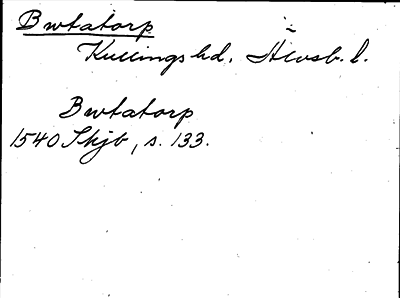 Bwtatorp
Kullings hd, Älvsb. l.
Bwtatorp
1540 Skjb, s. 133.